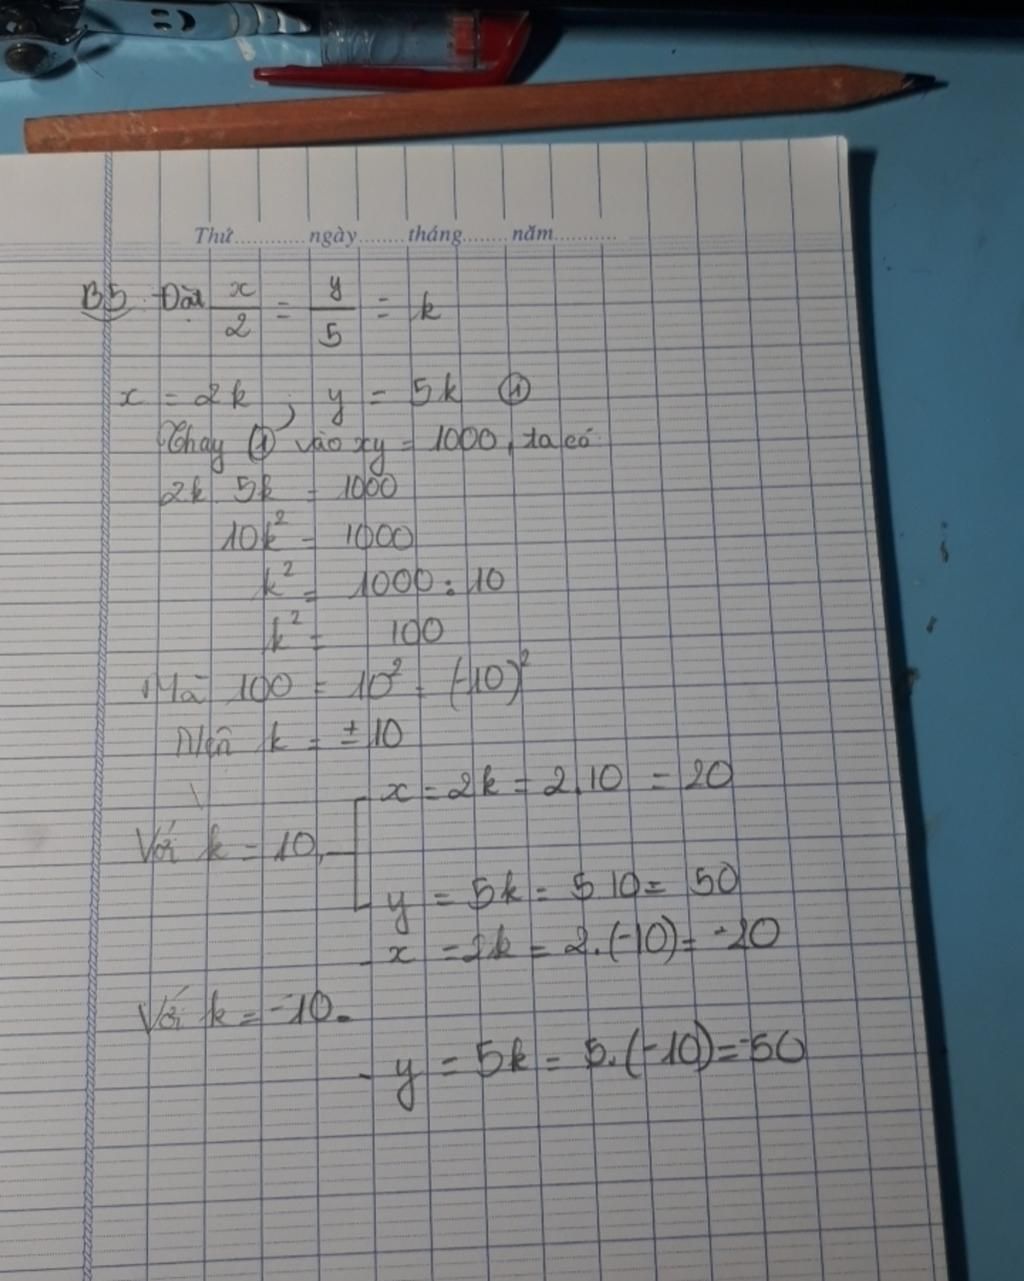 Thứ............ngày........tháng........năm............
B5 Đặt x/2 = y/5 = k
x = 2k ; y = 5k (1)
Thay (1) vào xy = 1000, ta có
2k. 5k = 1000
10k² = 1000
k² = 1000 : 10
k² = 100
Mà 100 = 10² = (-10)²
Nên k = ±10
x = 2k = 2.10 = 20
Với k = 10,
y = 5k = 5.10 = 50
x = 2k = 2.(-10) = -20
Với k = -10.
y = 5k = 5.(-10) = -50